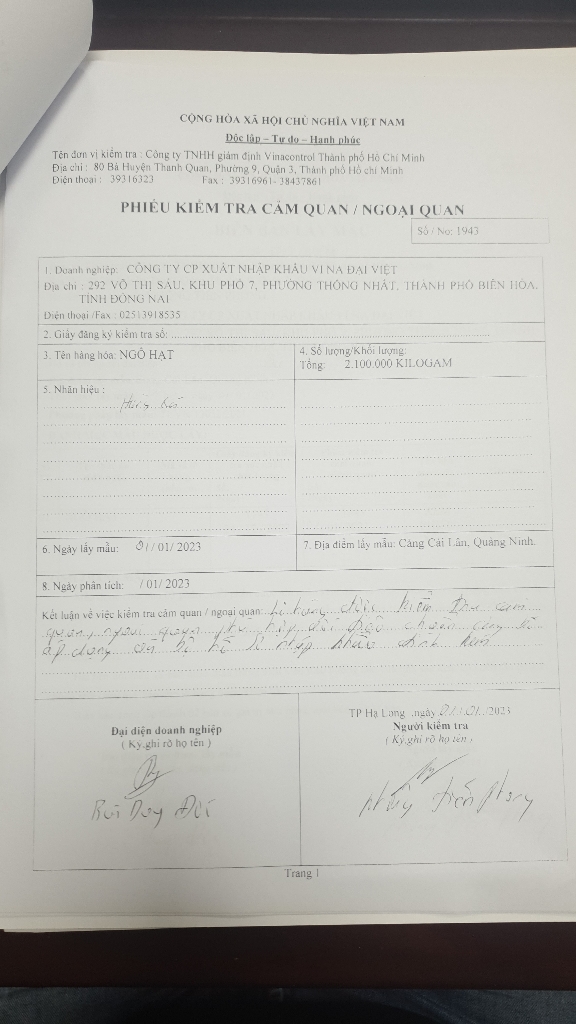 CỘNG HÒA XÃ HỘI CHỦ NGHĨA VIỆT NAM
Độc lập – Tự do – Hạnh phúc
Tên đơn vị kiểm tra : Công ty TNHH giám định Vinacontrol Thành phố Hồ Chí Minh
Địa chỉ : 80 Bà Huyện Thanh Quan, Phường 9, Quận 3, Thành phố Hồ chí Minh
Điện thoại : 39316323 Fax : 39316961- 38437861
PHIẾU KIỂM TRA CẢM QUAN / NGOẠI QUAN
Số / No: 1943
1. Doanh nghiệp: CÔNG TY CP XUẤT NHẬP KHẨU VI NA ĐẠI VIỆT
Địa chỉ : 292 VÕ THỊ SÁU, KHU PHỐ 7, PHƯỜNG THỐNG NHẤT, THÀNH PHỐ BIÊN HÒA,
TỈNH ĐỒNG NAI
Điện thoại /Fax : 02513918535
2. Giấy đăng ký kiểm tra số:
3. Tên hàng hóa: NGÔ HẠT
4. Số lượng/Khối lượng:
Tổng: 2.100.000 KILOGAM
5. Nhãn hiệu :
6. Ngày lấy mẫu: 01/ 01/ 2023
7. Địa điểm lấy mẫu: Cảng Cái Lân, Quảng Ninh.
8. Ngày phân tích: / 01/ 2023
Kết luận về việc kiểm tra cảm quan / ngoại quan: Lô hàng được kiểm tra cảm
quan, ngoại quan phù hợp
nhập khẩu
TP Hạ Long ,ngày 01/.01./2023
Đại diện doanh nghiệp
( Ký,ghi rõ họ tên )
Người kiểm tra
( Ký,ghi rõ họ tên )
Bùi Duy
Trang 1